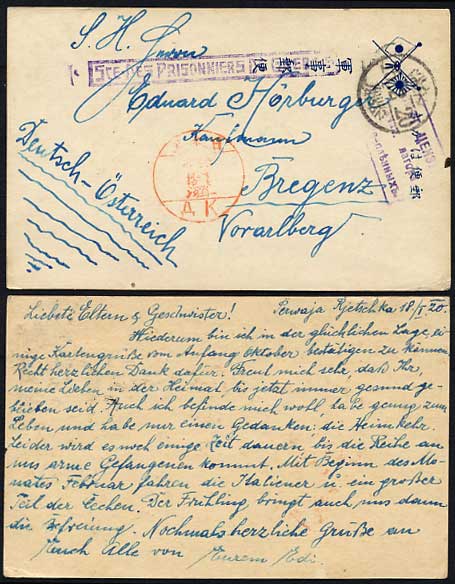 S. H. Herrn
Sce DES PRISONNIERS
軍事郵便
Eduard Hörburger
Kaufmann
Bregenz
Vorarlberg
Deutsch-Österreich
Д К
郵便
Liebste Eltern & Geschwister! Perwaja Rjetschka 18/I 20.
Wiederum bin ich in der glücklichen Lage, ei-
nige Kartengrüße vom Anfang Oktober bestätigen zu können
Recht herzlichen Dank dafür. Freut mich sehr, daß Ihr,
meine Lieben in der Heimat, bis jetzt immer gesund ge-
blieben seid. Auch ich befinde mich wohl, habe genug zum
Leben und habe nur einen Gedanken: die Heimkehr.
Leider wird es noch einige Zeit dauern, bis die Reihe an
uns arme Gefangenen kommt. Mit Beginn des Mo-
nates Februar fahren die Italiener u. ein großer
Teil der Čechen. Der Frühling bringt auch uns dann
die Befreiung. Nochmals herzliche Grüße an
Euch Alle von Eurem Edi.